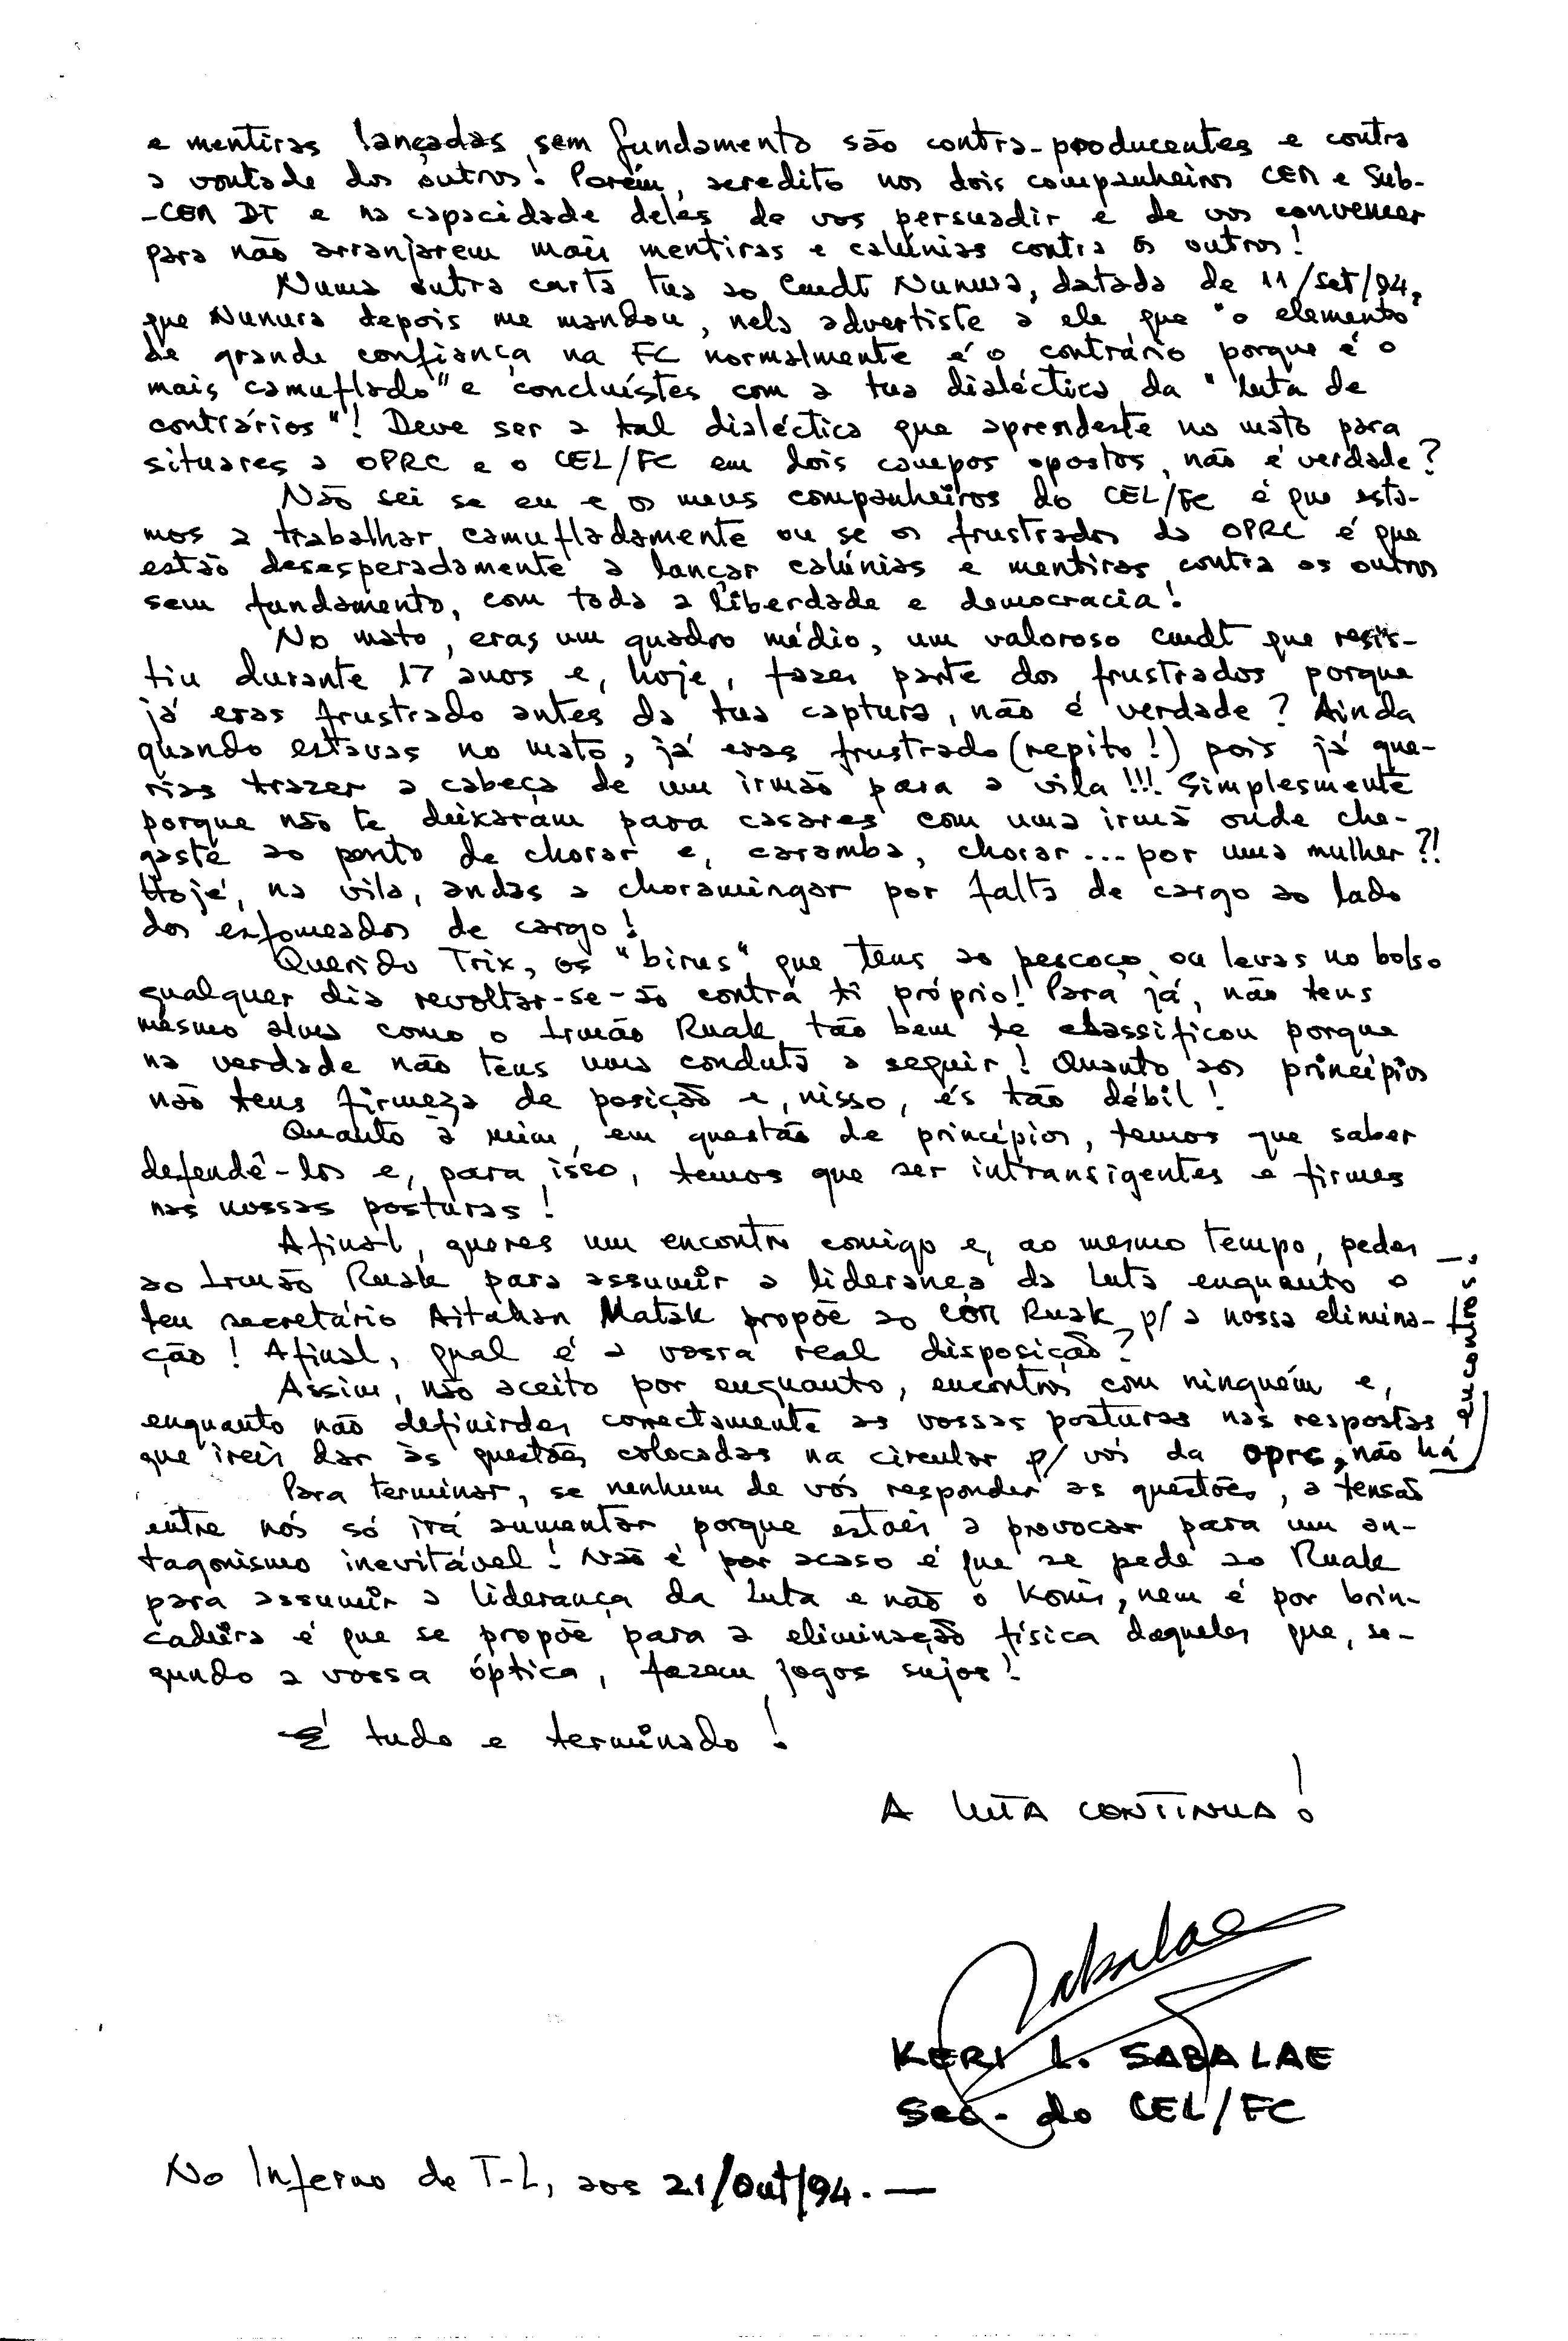 e mentiras lançadas sem fundamento são contra-producentes e contra
a vontade dos outros! Porém, acredito nos dois companheiros CEM e Sub-
-CEM DT e na capacidade deles de vos persuadir e de vos convencer
para não arranjarem mais mentiras e calúnias contra os outros!
Numa outra carta tua ao Cmdt Nunura, datada de 11/set/94,
que Nunura depois me mandou, nela advertiste a ele que "o elemento
de grande confiança na FC normalmente é o contrário porque é o
mais camuflado" e concluístes com a tua dialéctica da "luta de
contrários"! Deve ser a tal dialéctica que aprendeste no mato para
situares a OPRC e o CEL/FC em dois campos opostos, não é verdade?
Não sei se eu e os meus companheiros do CEL/FC é que esta-
mos a trabalhar camufladamente ou se os frustrados da OPRC é que
estão desesperadamente a lançar calúnias e mentiras contra os outros
sem fundamento, com toda a liberdade e democracia!
No mato, eras um quadro médio, um valoroso cmdt que resis-
tiu durante 17 anos e, hoje, fazes parte dos frustrados porque
já eras frustrado antes da tua captura, não é verdade? Ainda
quando estavas no mato, já eras frustrado (repito!) pois já que-
rias trazer a cabeça de um irmão para a vila!!! Simplesmente
porque não te deixaram para casares com uma irmã onde che-
gaste ao ponto de chorar e, caramba, chorar... por uma mulher?!
Hoje, na vila, andas a choramingar por falta de cargo ao lado
dos esfomeados de cargo!
Querido Trix, os "birus" que tens ao pescoço ou levas no bolso
qualquer dia revoltar-se-ão contra ti próprio! Para já, não tens
mesmo alma como o Irmão Ruak tão bem te classificou porque
na verdade não tens uma conduta a seguir! Quanto aos princípios
não tens firmeza de posição e, nisso, és tão débil!
Quanto a mim, em questão de princípios, temos que saber
defendê-los e, para isso, temos que ser intransigentes e firmes
nas nossas posturas!
Afinal, queres um encontro comigo e, ao mesmo tempo, pedes
ao Irmão Ruak para assumir a liderança da Luta enquanto o
teu secretário Aitahan Matak propõe ao Ruak p/ a nossa elimina-
ção! Afinal, qual é a vossa real disposição?
Assim, não aceito por enquanto, encontros com ninguém e,
enquanto não definirdes correctamente as vossas posturas nas respostas
que ireis dar às questões colocadas na circular p/ vós da OPRC, não há
encontros!
Para terminar, se nenhum de vós responder as questões, a tensão
entre nós só irá aumentar porque estais a provocar para um an-
tagonismo inevitável! Não é por acaso é que se pede ao Ruak
para assumir a liderança da Luta e não o Konis, nem é por brin-
cadeira é que se propõe para a eliminação física daqueles que, se-
gundo a vossa óptica, fazem jogos sujos!
É tudo e terminado!
A LUTA CONTINUA!
Sabalae
KERI L. SABALAE
Sec. do CEL/FC
No Inferno de T-L, aos 21/Out/94.—